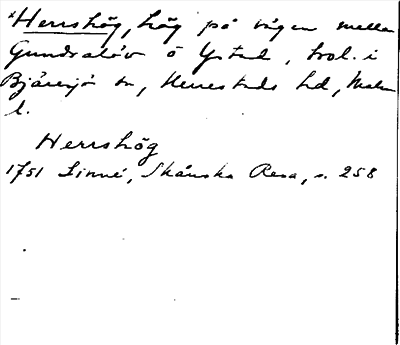 *Herrshög, hög på vägen mellan
Gundralöv o Ystad, trol. i
Bjäresjö sn, Herrestads hd, Malm
l.
Herrshög
1751 Linné, Skånska Resa, s. 258